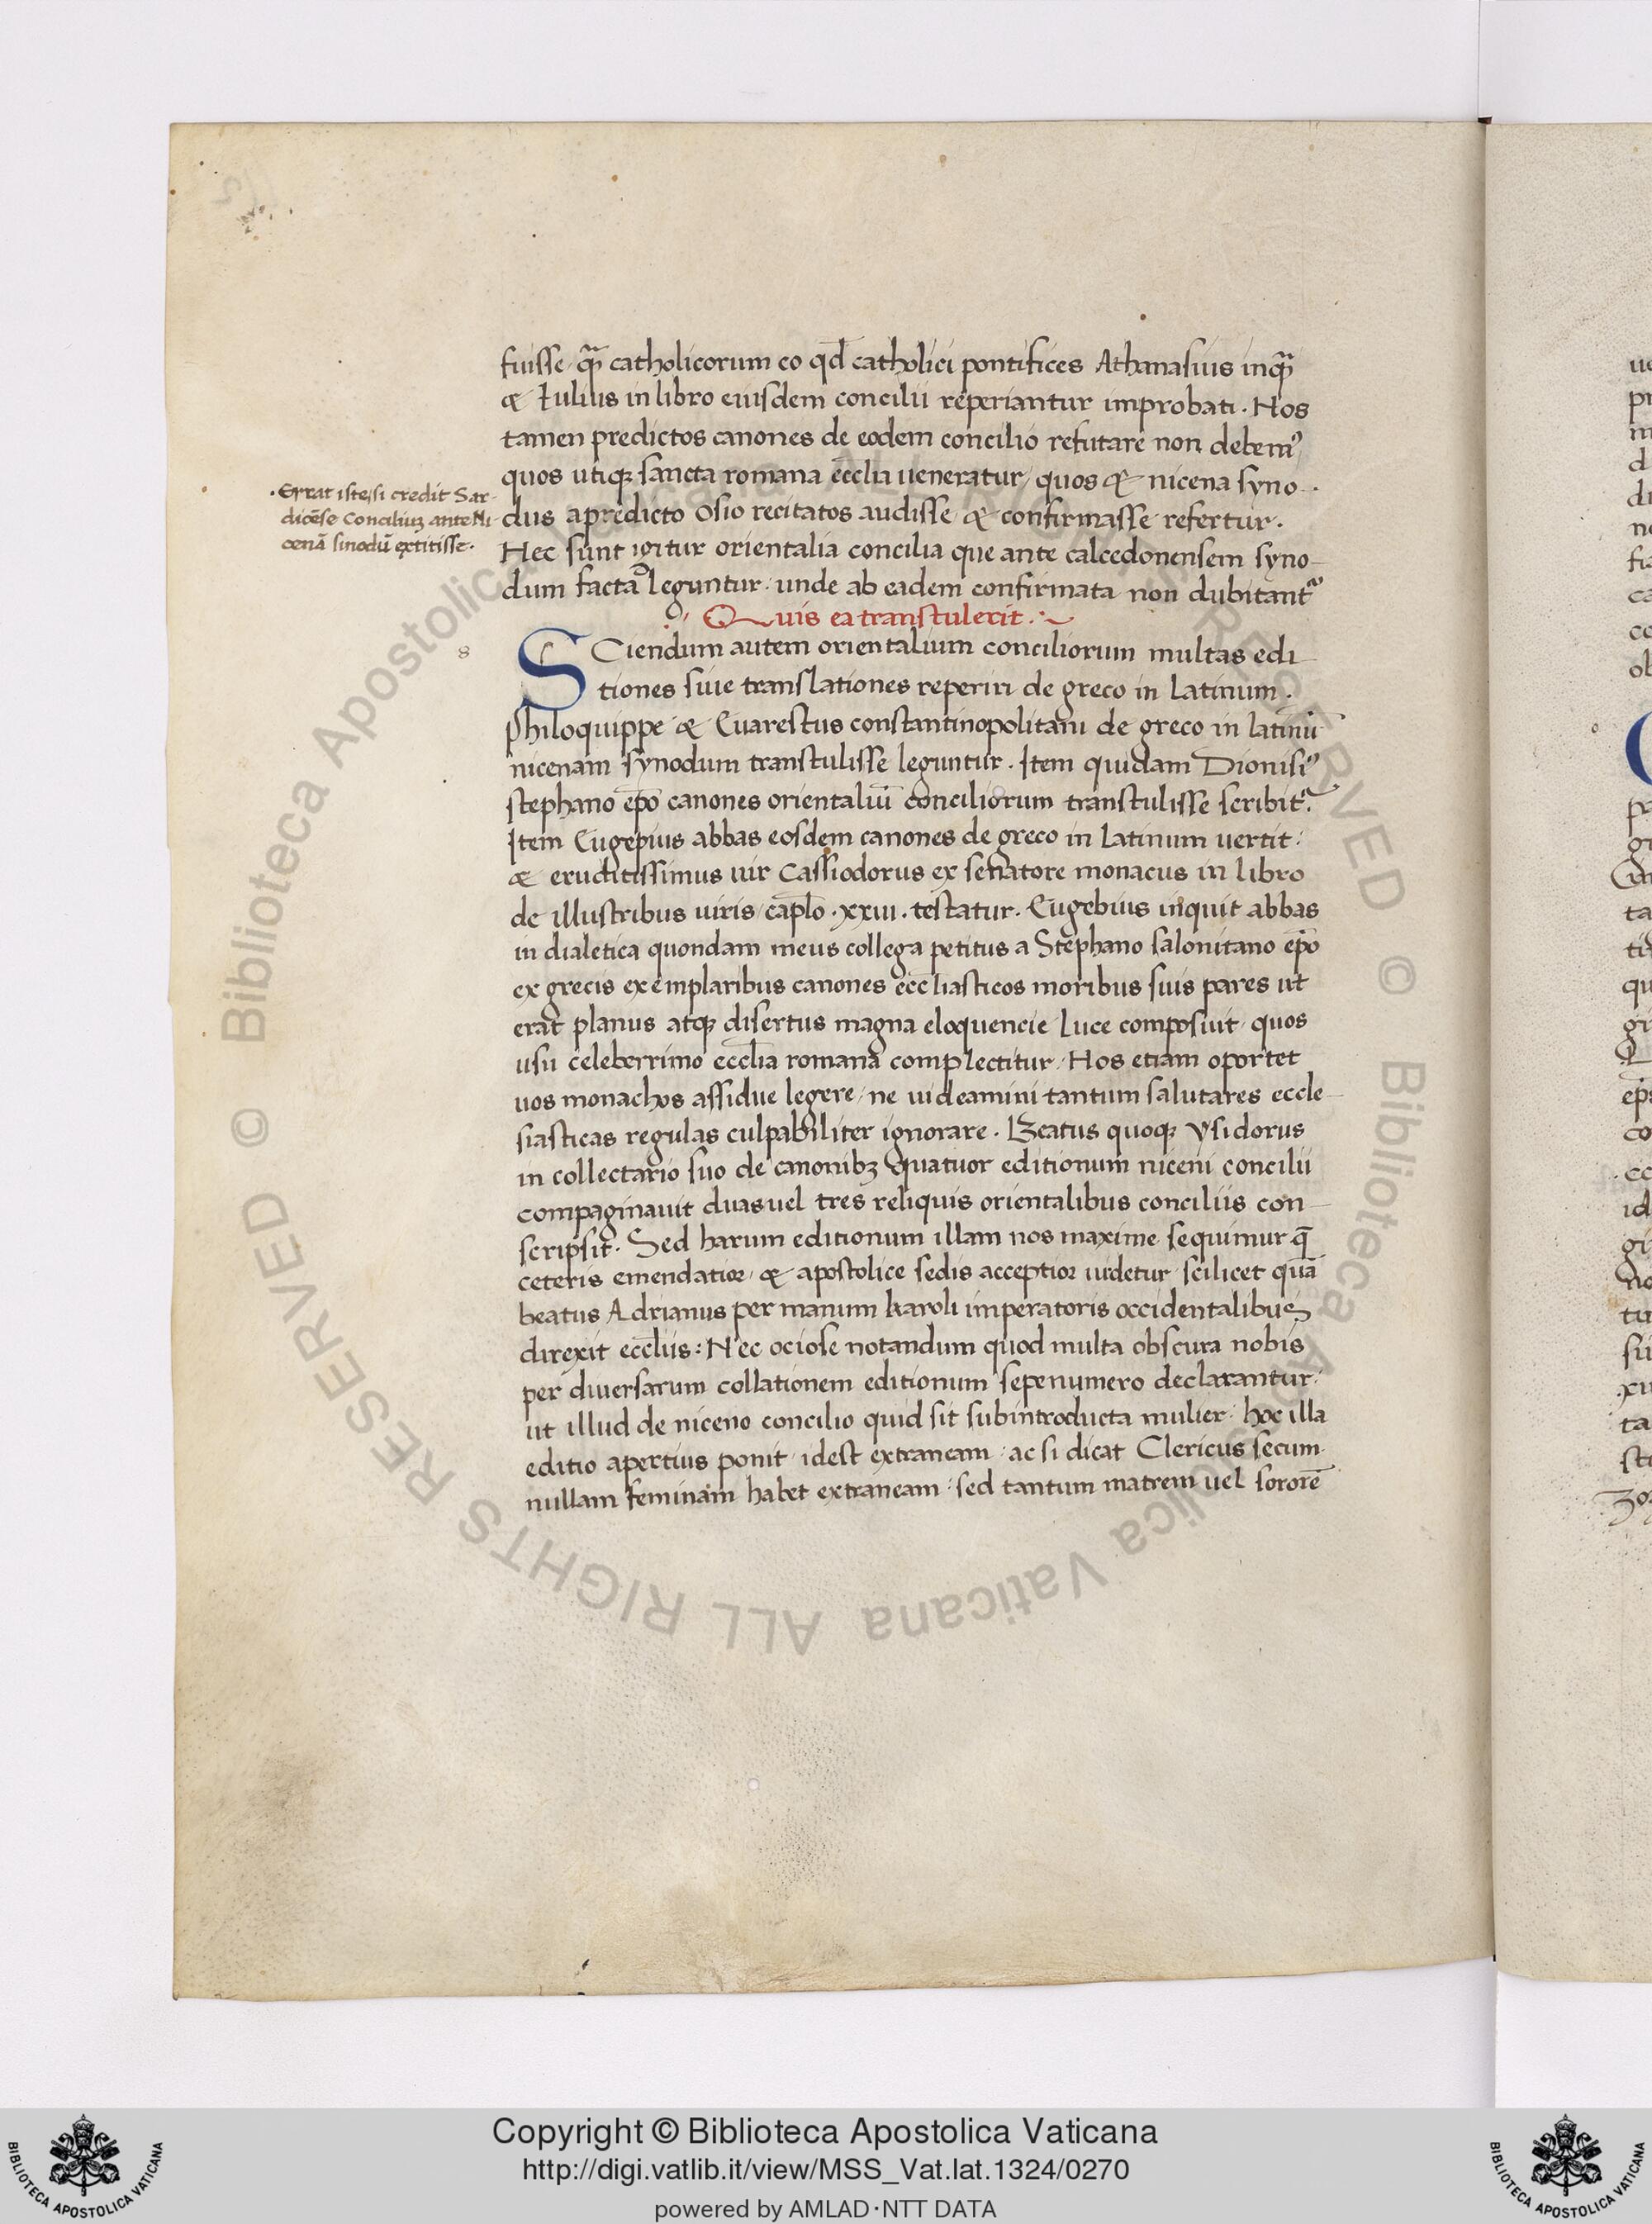 fuisse qᷓm catholicorum eo qđ catholici pontifices Athanasius inqᷓm
& Iulius in libro eiusdem concilii reperiantur improbati. Nos
tamen predictos canones de eodem concilio refutare non debemꝰ
quos utiqꝫ sancta romana ecclīa ueneratur, quos & nicena syno-
dus apredicto Osio recitatos audisse & confirmasse refertur.
Hec sunt igitur orientalia concilia que ante calcedonensem syno-
dum facta leguntur. unde ab eadem confirmata non dubitantᷣ
.Errat iste, si credit Sar-
dicēse Conciliuꝫ ante Ni-
cenā sinodū extitisse.
Quis ea transtulerit.
8
SCiendum autem orientalium conciliorum multas edi-
tiones siue translationes reperiri de greco in Latinum.
philoquippe & Euarestus constantinopolitani de greco in latinū
nicenam synodum transtulisse leguntur. Item quidam Dionisiꝰ
stephano ep̄o canones orientaliū conciliorum transtulisse scribitᷣ.
Item Eugepius abbas eosdem canones de greco in Latinum uertit:
& eruditissimus uir Cassiodorus ex senatore monacus in libro
de illustribus uiris cap̄lo .xxiii. testatur. Eugebius inquit abbas
in dialetica quondam meus collega petitus a Stephano salonitano ep̄o
ex grecis exemplaribus canones eccliasticos moribus suis pares ut
erat planus atqꝫ disertus magna eloquencie Luce composuit quos
usu celeberrimo ecclīa romana complectitur. Hos etiam oportet
uos monachos assidue legere, ne uideamini tantum salutares eccle-
siasticas regulas culpabiliter ignorare. Beatus quoqꝫ ysidorus
in collectario suo de canonibꝫ quatuor editionum niceni concilii
compaginauit duas uel tres reliquis orientalibus conciliis con-
scripsit. Sed harum editionum illam nos maxime sequimur q̄
ceteris emendatior & apostolice sedis acceptior uidetur scilicet quā
beatus Adrianus per manum karoli imperatoris occidentalibus
direxit eccl̄iis: Nec ociose notandum quod multa obscura nobis
per diuersarum collationem editionum sepenumero declarantur
ut illud de niceno concilio quid sit subintroducta mulier hoc illa
editio apertius ponit idest extraneam ac si dicat Clericus secum
nullam feminam habet extraneam sed tantum matrem uel sororē
© Biblioteca Apostolica Vaticana ALL RIGHTS RESERVED © Biblioteca Apostolica Vaticana ALL RIGHTS RESERVED
Copyright © Biblioteca Apostolica Vaticana
http://digi.vatlib.it/view/MSS_Vat.lat.1324/0270
powered by AMLAD·NTT DATA
BIBLIOTECA APOSTOLICA VATICANA
BIBLIOTECA APOSTOLICA VATICANA